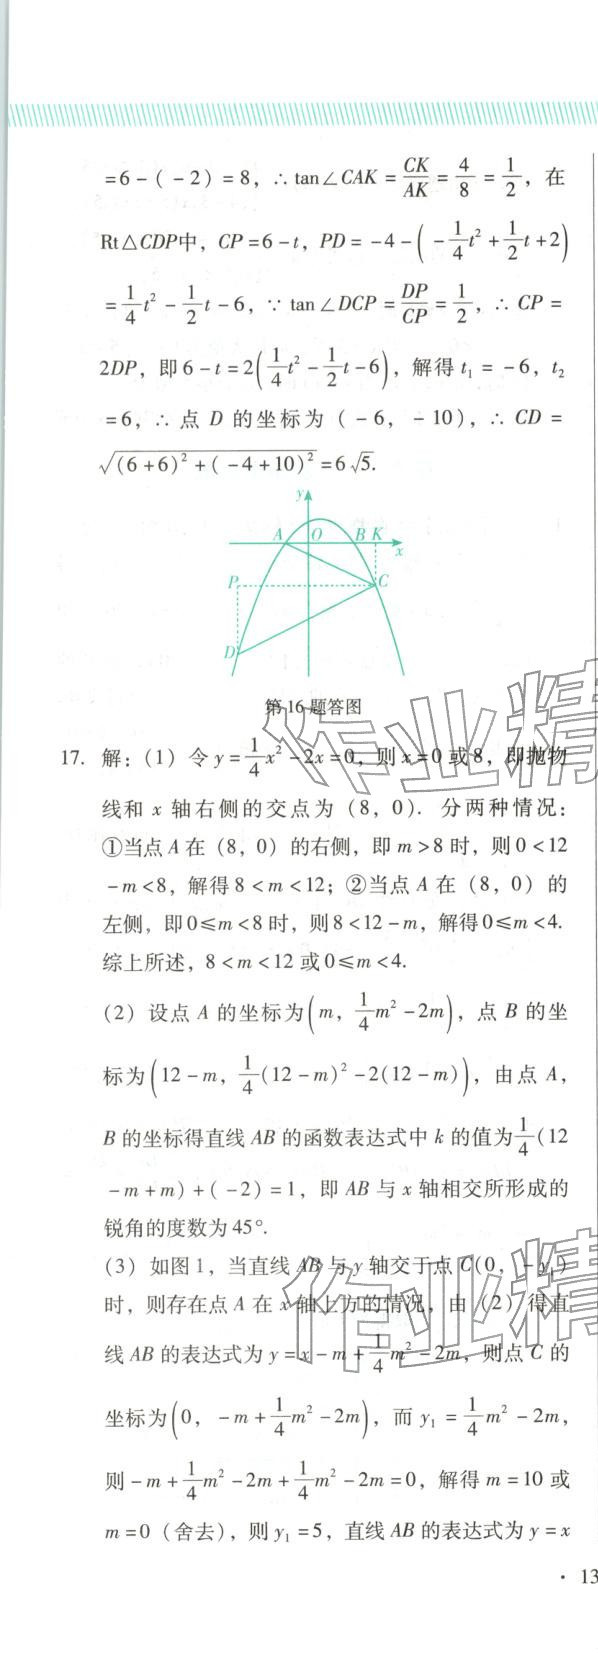 =6-(-2)=8, ∴ tan∠CAK=CK/AK=4/8=1/2, 在
Rt△CDP中, CP=6-t, PD=-4-(-1/4t²+1/2t+2)
=1/4t²-1/2t-6, ∵ tan∠DCP=DP/CP=1/2, ∴ CP=
2DP, 即6-t=2(1/4t²-1/2t-6), 解得t₁=-6, t₂
=6, ∴ 点 D 的坐标为 (-6, -10), ∴ CD=
√((6+6)²+(-4+10)²)=6√5.
y
A O B K
x
P C
D
第16题答图
17. 解: (1) 令 y=1/4x²-2x=0, 则 x=0 或 8, 即抛物
线和 x 轴右侧的交点为 (8, 0). 分两种情况:
①当点 A 在 (8, 0) 的右侧, 即 m>8 时, 则 0<12
-m<8, 解得 8<m<12; ②当点 A 在 (8, 0) 的
左侧, 即0≤m<8 时, 则8<12-m, 解得0≤m<4.
综上所述, 8<m<12 或0≤m<4.
(2) 设点 A 的坐标为(m, 1/4m²-2m), 点 B 的坐
标为(12-m, 1/4(12-m)²-2(12-m)), 由点 A,
B 的坐标得直线 AB 的函数表达式中 k 的值为1/4(12
-m+m)+(-2)=1, 即 AB 与 x 轴相交所形成的
锐角的度数为45°.
(3) 如图1, 当直线 AB 与 y 轴交于点 C(0, -y₁)
时, 则存在点 A 在 x 轴上方的情况, 由 (2) 得直
线 AB 的表达式为 y=x-m+1/4m²-2m, 则点 C 的
坐标为(0, -m+1/4m²-2m), 而 y₁=1/4m²-2m,
则-m+1/4m²-2m+1/4m²-2m=0, 解得 m=10 或
m=0 (舍去), 则 y₁=5, 直线 AB 的表达式为 y=x
· 13
作业精
作业精